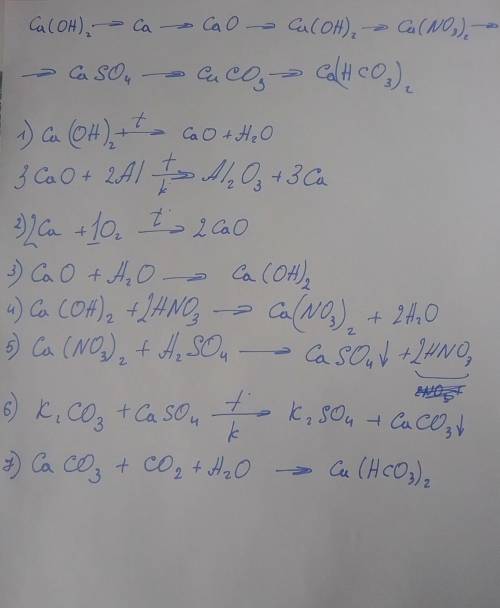 Ca(OH)₂ → Ca → CaO → Ca(OH)₂ → Ca(NO₃)₂ →
→ CaSO₄ → CaCO₃ → Ca(HCO₃)₂
1) Ca(OH)₂ t→ CaO + H₂O
3CaO + 2Al t/k→ Al₂O₃ + 3Ca
2) 2Ca + 1O₂ t→ 2CaO
3) CaO + H₂O → Ca(OH)₂
4) Ca(OH)₂ + 2HNO₃ → Ca(NO₃)₂ + 2H₂O
5) Ca(NO₃)₂ + H₂SO₄ → CaSO₄↓ + 2HNO₃
6) K₂CO₃ + CaSO₄ t/k→ K₂SO₄ + CaCO₃↓
7) CaCO₃ + CO₂ + H₂O → Ca(HCO₃)₂